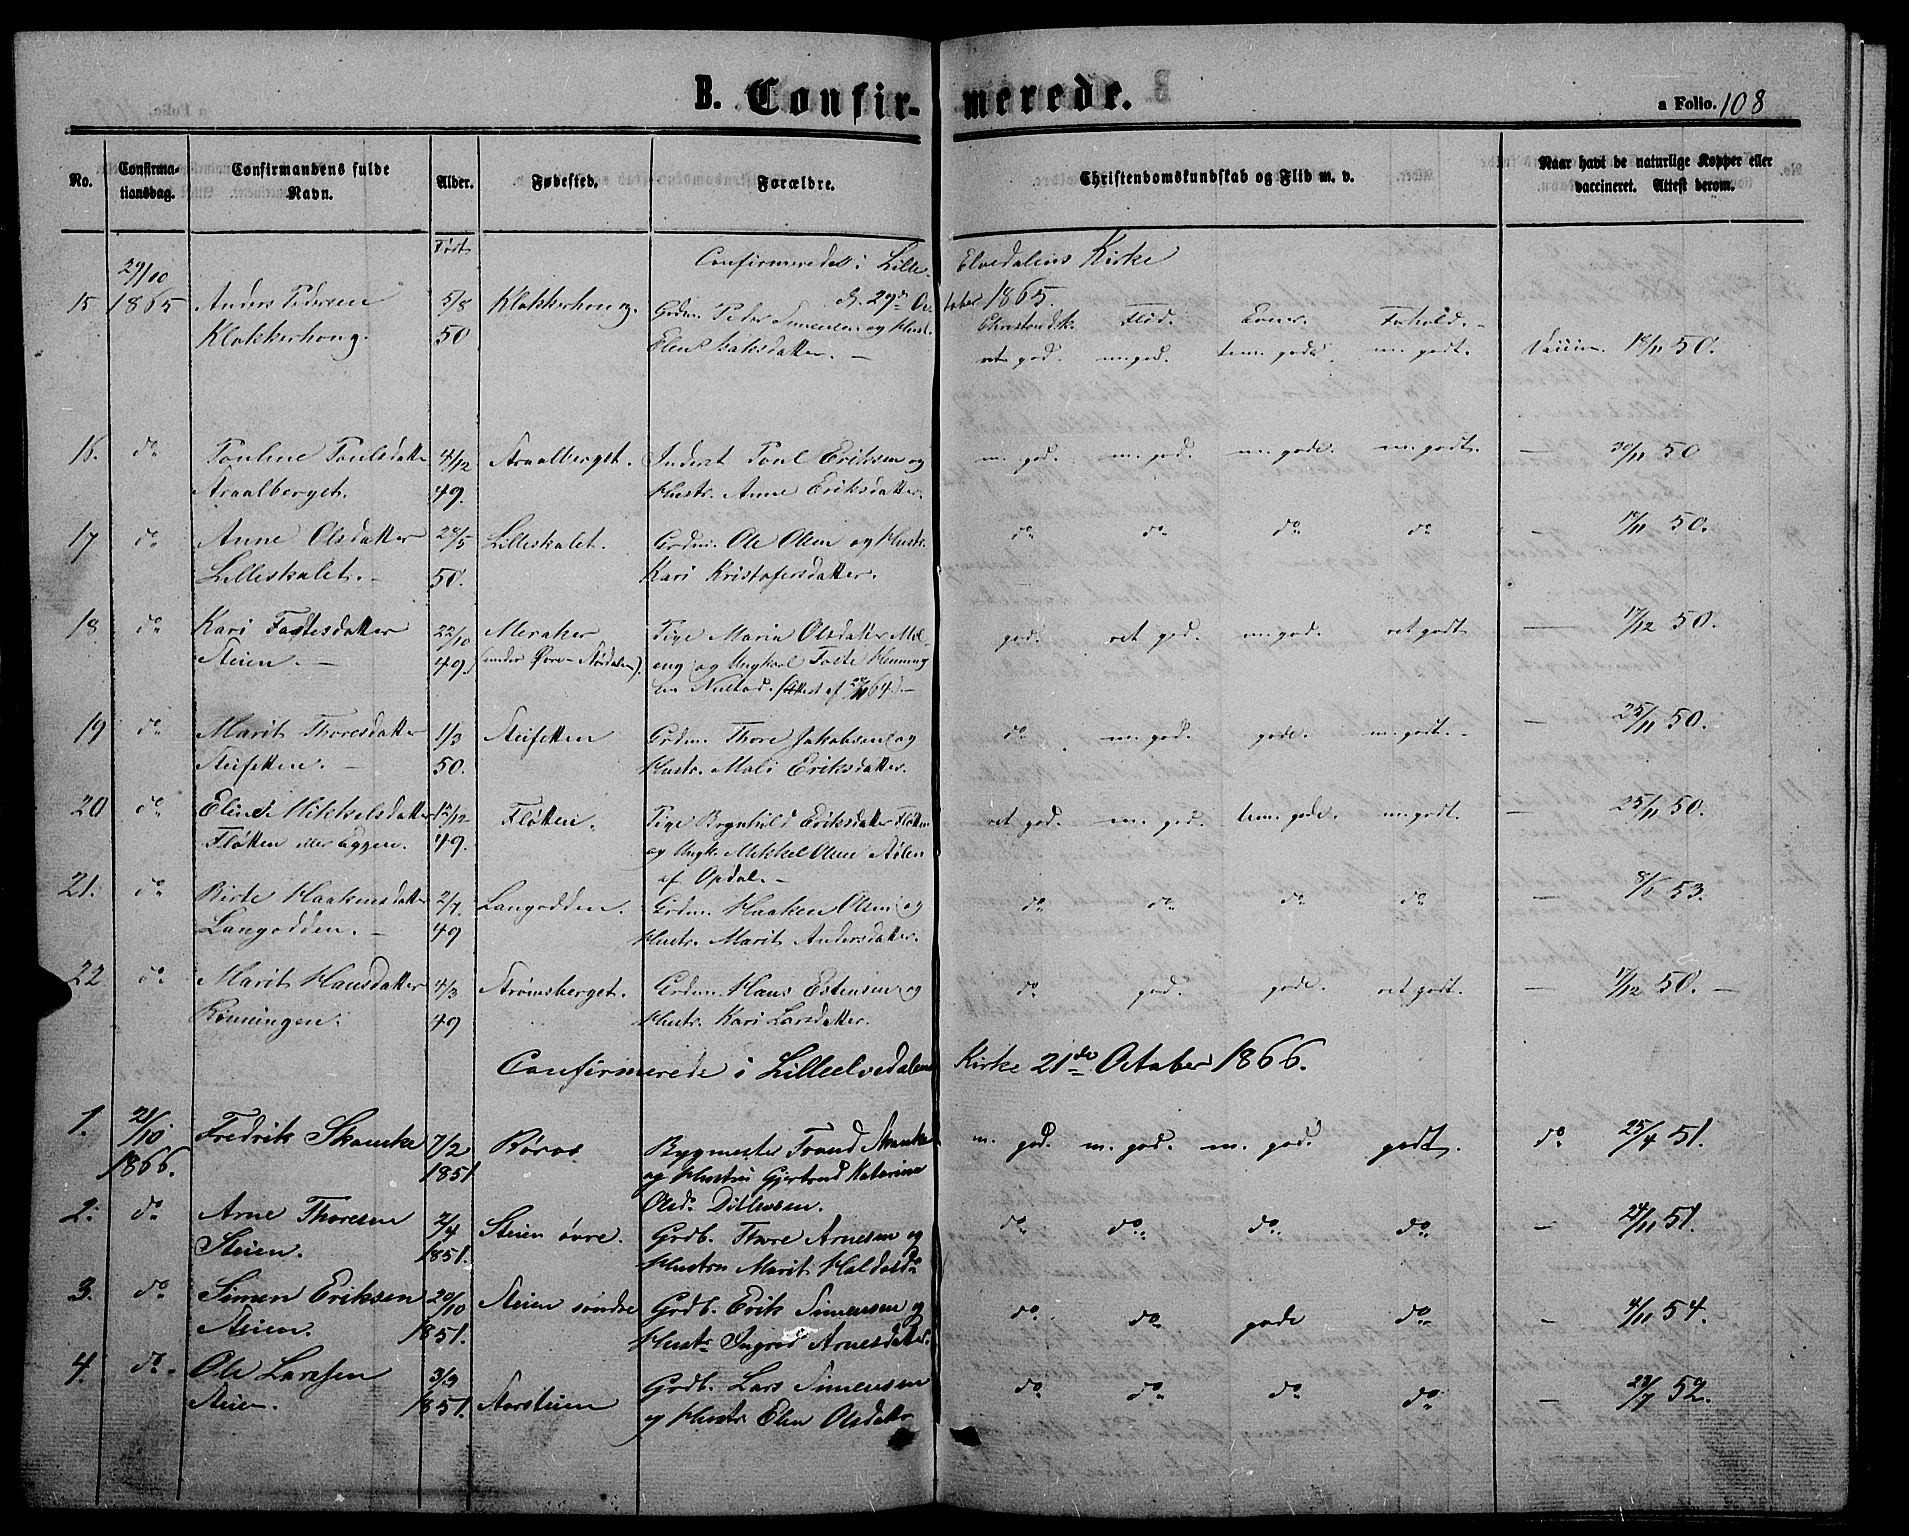 B. Confirmerede.
a Folio. 108
No.
Confirma-
tionsdag.
Confirmandens fulde
Navn.
Alder.
Fødested.
Forældre.
Christendomskundskab og Flid m. v.
Naar havt de naturlige Kopper eller
vaccineret. Attest derom.
Født
Confirmerede i Lille-Elvedalens Kirke
d. 29de October 1865.
15 29/10 1865 Anders Pedersen 5/8 Klokkerhoug. Grdm. Peder Simensen og Hust. Christendsk. Flid. Evner. Forhold.
Klokkerhoug. 50 Elen Isaksdatter. ret god. m. god. tem. gode. m. godt. Vaccin. 18/11 50.
16. do Pouline Poulsdatt. 4/12 Straalberget. Inderst Poul Eriksen og m. god. m. god. m. gode. m. godt. — 30/11 50
Straalberget. 49. Hustr. Anne Eriksdatter.
17 do Anne Olsdatter 28/5 Lilleskalet. Grdm. Ole Olsen og Hustr. do do do do — 18/11 50.
Lilleskalet. 50. Kari Kristofersdatter.
18 do Kari Tostesdatter 22/10 Meraker Pige Maria Olsdatter god. ret god. m. god. ret godt — 17/12 50.
Steien. 49. (under Øvre-Størdalen). og Ungkarl Toste Henning
64.
19 do Marit Thoresdatter 1/3 Steifetten Grdm. Thore Jakobsen og do. m. god. gode. m. godt. — 25/11 50.
Steifetten. 50. Hustr. Mali Eriksdatter.
20 do Eline Mikkelsdatter 15/12 Fløtten. Pige Brynhild Eriksdatter Fløtten ret god. m. god. tem. gode. m. godt. — 25/11 50.
Fløtten eller Eggen. 49. og Ungk. Mikkel Olsen
af Opdal.
21. do Birte Haakensdatter 2/7. Langodden. Grdm. Haaken Olsen og do do do do — 8/1 53.
Langodden. 49 Hustr. Marit Andersdatter.
22 do Marit Hansdatter 4/3 Strømsberget. Grdm. Hans Estensen og do god. gode. ret godt. — 17/12 50.
Rønningen. 49 Hustr. Kari Larsdatter.
Confirmerede i Lilleelvedalens Kirke 21de October 1866.
1. 21/10 Fredrik Skancke 7/2 Røros Bygmester Trond Skancke m. god. m. god. m. god. godt. do 25/4 51.
1866. 1851 og Hustru Gjertrud Katarina
Olsdr Dillessen.
2. do Arne Thoresen 2/4 Steien øvre. Grdb. Thore Arnesen og do do do do — 24/11 51.
Steien. 1851. Hustru Marit Haldosdr
3. do Simen Eriksen 20/10 Steien søndre Grdb. Erik Simensen og do. do gode do — 4/11 54.
Steien. 1851. Hustr Ingrid Arnesdatter.
4. do Ole Larssen 3/3 Storsteien Grdb. Lars Simensen do do do do — 23/7 52.
Steien. 1851. og Hustr. Elen Olsdatter